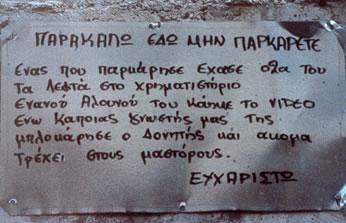 ΠΑΡΑΚΑΛΩ ΕΔΩ ΜΗΝ ΠΑΡΚΑΡΕΤΕ
Ενας που παρκάρησε Εχασε ολα του
Τα Λεφτά στο χρηματιστόριο
Ενανού Αλουνού του Κάηκε το VIDEO
Ενω Καποιας γνωστής μας της
μπλοκάρησε ο Δονητής και ακομα
Τρέχει στους μαστόρους.
ΕΥΧΑΡΙΣΤΩ